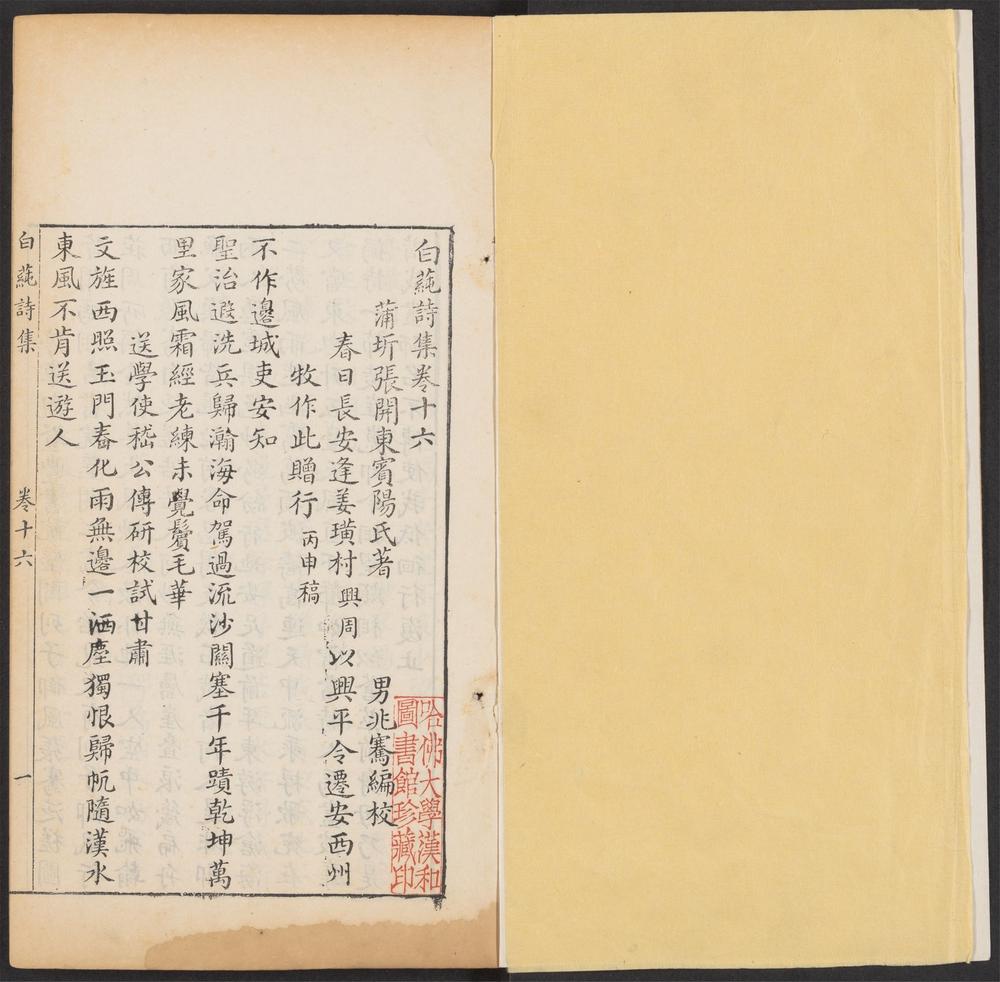 白蒓詩集卷十六
蒲圻張開東賓陽氏著 男兆騫編校
春日長安逢姜璜村興周以興平令遷安西州
牧作此贈行丙申稿
不作邊城吏安知
聖治遐洗兵歸瀚海命駕過流沙關塞千年蹟乾坤萬
里家風霜經老練未覺鬢毛華
送學使嵇公傳研校試甘肅
文旌西照玉門春化雨無邊一洒塵獨恨歸帆隨漢水
東風不肯送遊人
白蒓詩集 卷十六 一
哈佛大學漢和
圖書館珍藏印